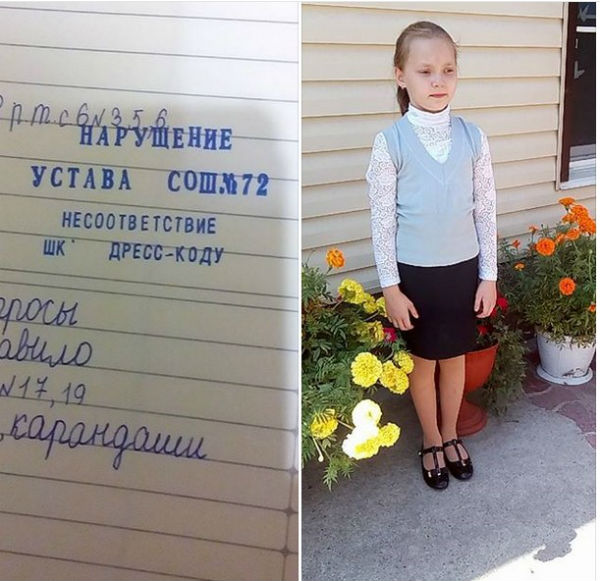 р.т. с 6 N 3,5,6
НАРУШЕНИЕ
УСТАВА СОШ№72
НЕСООТВЕТСТВИЕ
ШК ДРЕСС-КОДУ
N17,19
карандаши